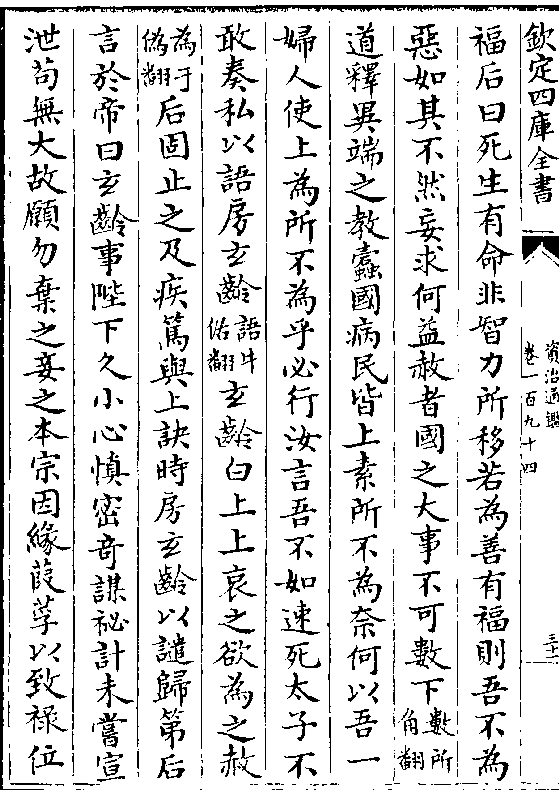 欽定四庫全書
資治通鑑
卷一百九十四
三十一
福后曰死生有命非智力所移若為善有福則吾不為
惡如其不然妄求何益赦者國之大事不可數下數所角翻
道釋異端之教蠧國病民皆上素所不為奈何以吾一
婦人使上為所不為乎必行汝言吾不如速死太子不
敢奏私以語房玄齡語牛倨翻玄齡白上上哀之欲為之赦
為于偽翻后固止之及疾篤與上訣時房玄齡以譴歸第后
言於帝曰玄齡事陛下久小心慎密奇謀祕計未嘗宣
泄茍無大故願勿棄之妾之本宗因緣葭莩以致祿位